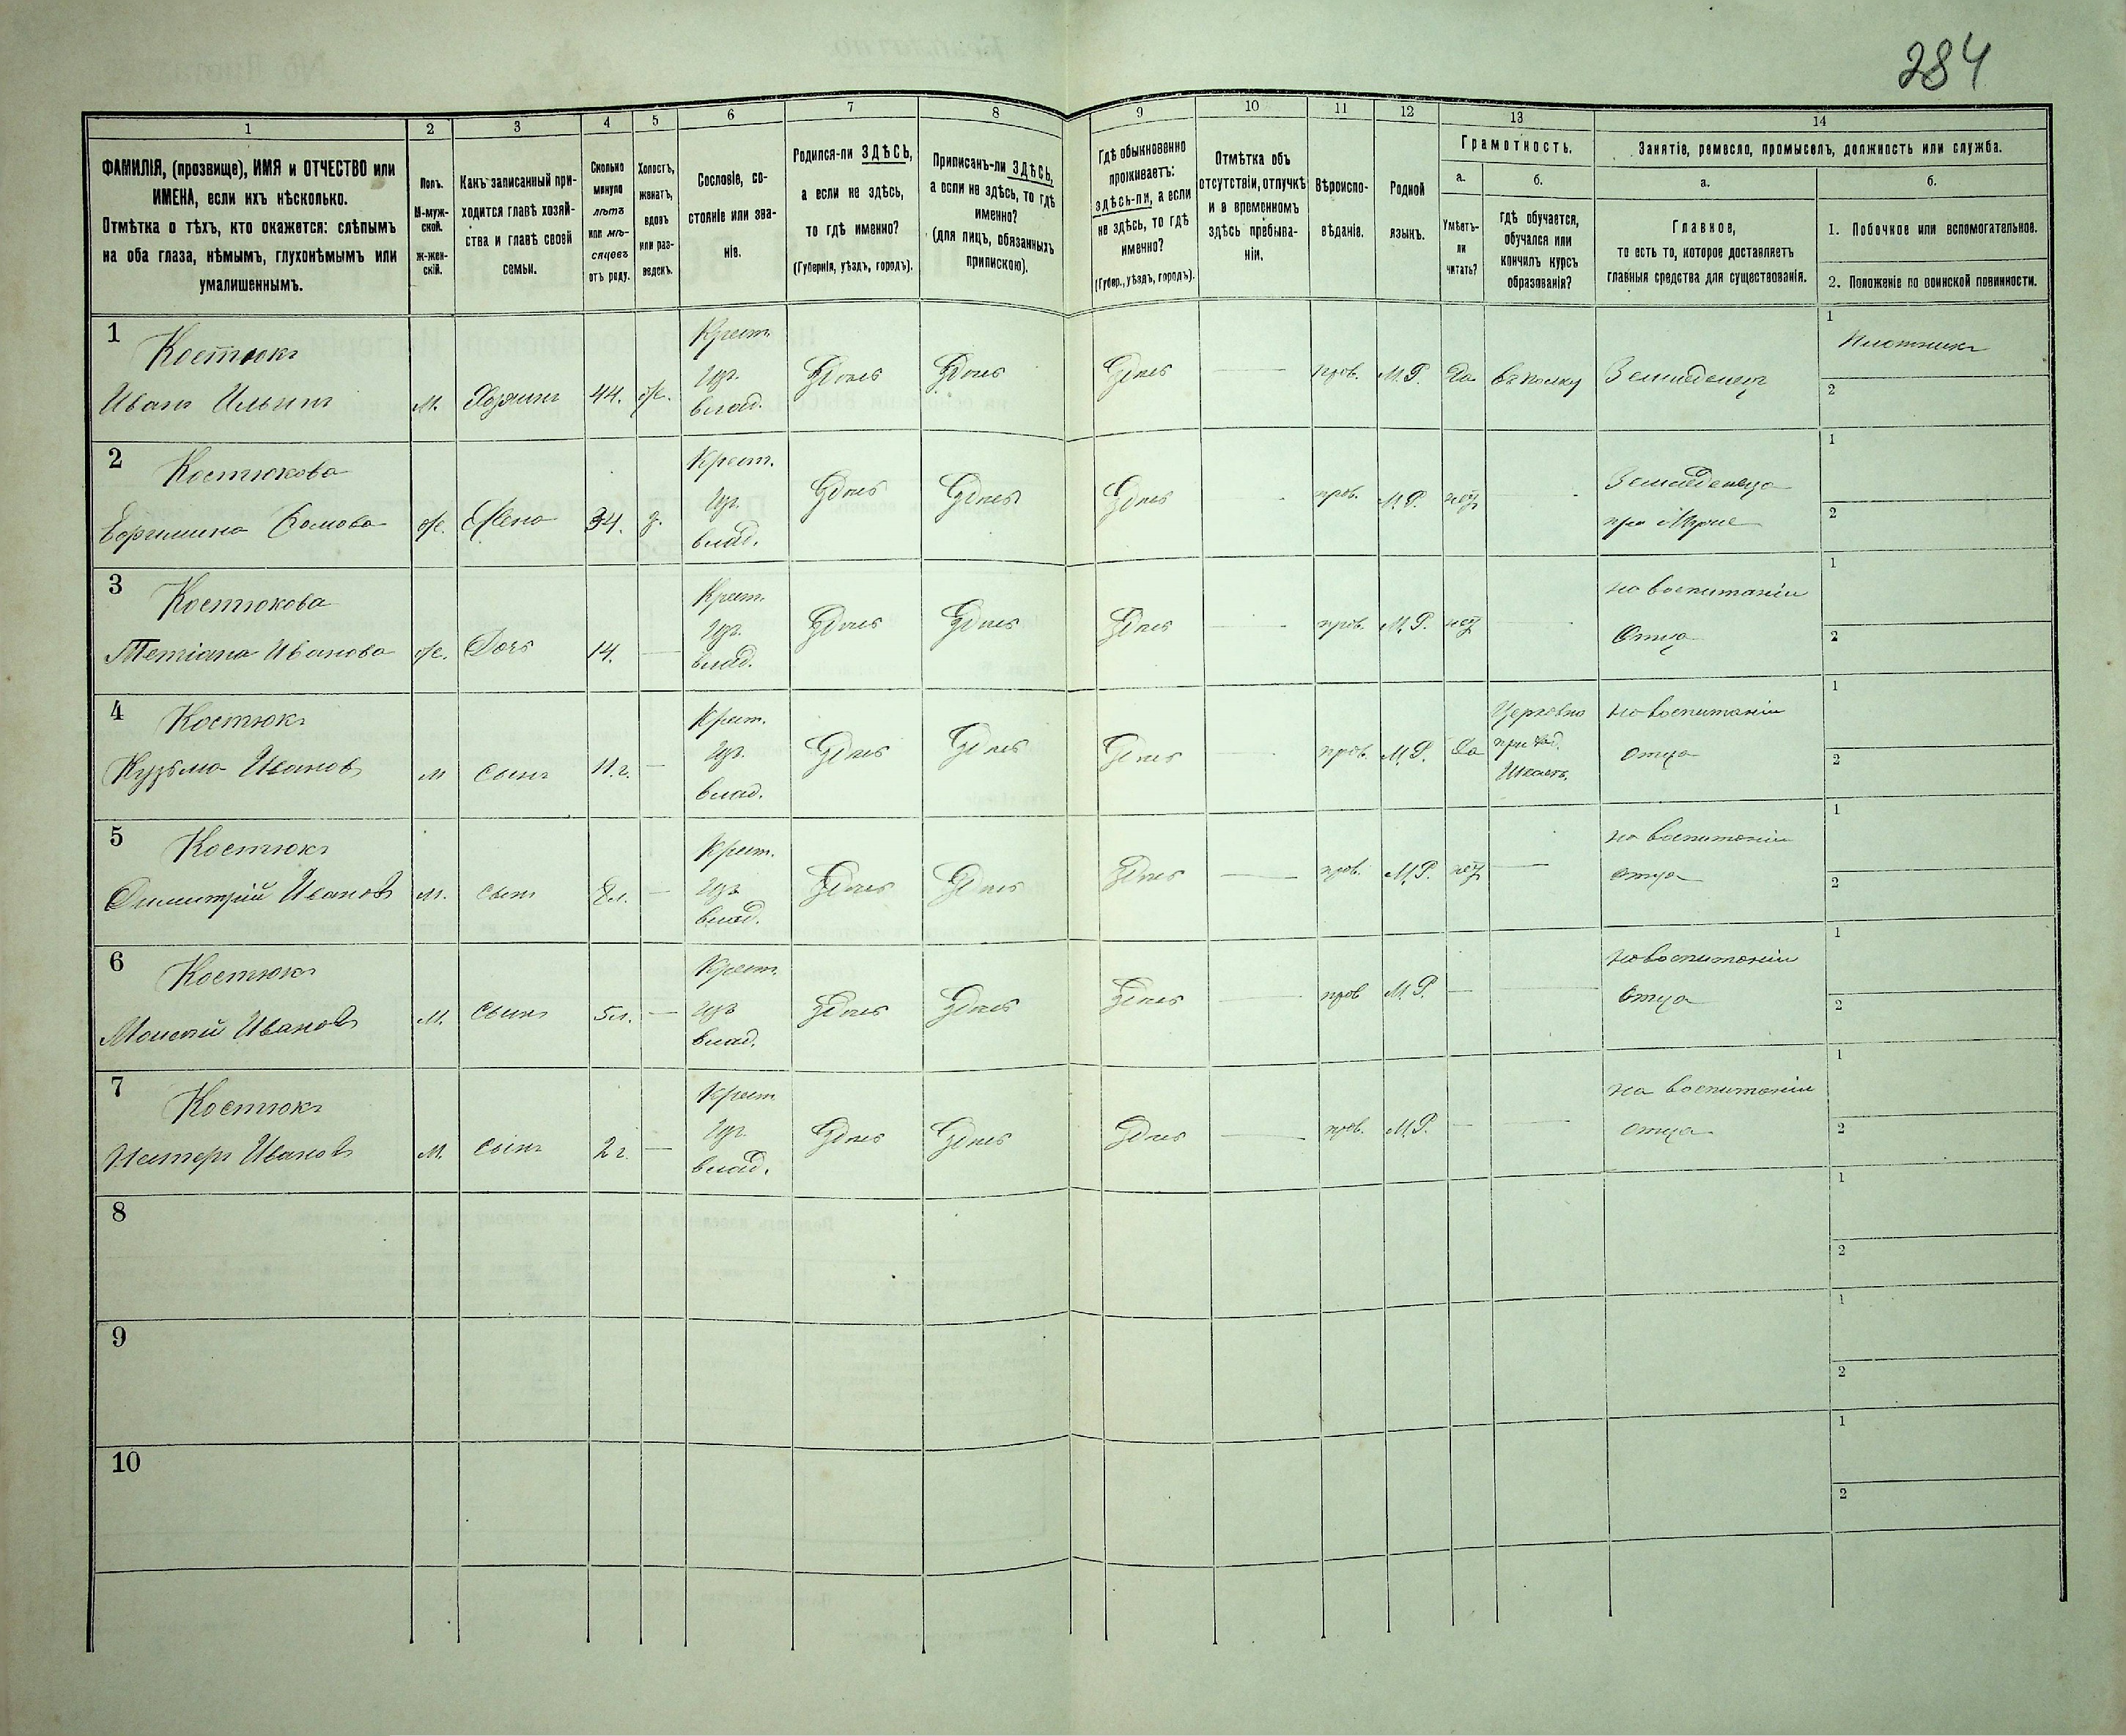 284
1
2
3
4
5
6
7
8
9
10
11
12
13
14
ФАМИЛІЯ, (прозвище), ИМЯ и ОТЧЕСТВО или
ИМЕНА, если ихъ нѣсколько.
Отмѣтка о тѣхъ, кто окажется: слѣпымъ
на оба глаза, нѣмымъ, глухонѣмымъ или
умалишеннымъ.
Полъ.
М-муж-
ской.
Ж-жен-
скій.
Какъ записанный при-
ходится главѣ хозяй-
ства и главѣ своей
семьи.
Сколько
минуло
лѣтъ
или мѣ-
сяцевъ
отъ роду.
Холостъ,
женатъ,
вдовъ
или раз-
веденъ.
Сословіе, со-
стояніе или зва-
ніе.
Родился-ли ЗДѢСЬ,
а если не здѣсь,
то гдѣ именно?
(Губернія, уѣздъ, городъ).
Приписанъ-ли ЗДѢСЬ,
а если не здѣсь, то гдѣ
именно?
(для лицъ, обязанныхъ
припискою).
Гдѣ обыкновенно
проживаетъ:
здѣсь-ли, а если
не здѣсь, то гдѣ
именно?
(Губер., уѣздъ, городъ).
Отмѣтка объ
отсутствіи, отлучкѣ
и в временномъ
здѣсь пребыва-
ніи.
Вѣроиспо-
вѣданіе.
Родной
языкъ.
Грамотность.
а.
Умѣетъ-
ли
читать?
б.
гдѣ обучается,
обучался или
кончилъ курсъ
образованія?
Занятіе, ремесло, промыселъ, должность или служба.
а.
Главное,
то есть то, которое доставляетъ
главныя средства для существованія.
б.
1. Побочное или вспомогательное.
2. Положеніе по воинской повинности.
1
Костюкъ
Иванъ Ильинъ
м.
Хозяинъ
44.
ж.
Крест.
изъ
влад.
Здѣсь
Здѣсь
Здѣсь
прав.
М.Р.
да
Земледелецъ
1
Плотникъ
2
2
Костюкова
ж.
Жена
34.
з.
Крест.
изъ
влад.
Здѣсь
Здѣсь
Здѣсь
прав.
М.Р.
нѣтъ
Земледелица
при Мужѣ
1
2
3
Костюкова
Тетіана Иванова
ж.
Дочь
14.
Крест.
изъ
влад.
Здѣсь
Здѣсь
Здѣсь
прав.
М.Р.
нѣтъ
на воспитаніи
Отца
1
2
4
Костюкъ
Кузьма Ивановъ
м
сынъ
11.г.
Крест.
изъ
влад.
Здѣсь
Здѣсь
Здѣсь
прав.
М.Р.
да
Церковно
приход.
на воспитаніи
отца
1
2
5
Костюкъ
Димитрій Ивановъ
м.
сынъ
8л.
Крест.
изъ
влад.
Здѣсь
Здѣсь
Здѣсь
прав.
М.Р.
нѣтъ
на воспитаніи
отца
1
2
6
Костюкъ
Моисей Ивановъ
м.
сынъ
5л.
Крест.
изъ
влад.
Здѣсь
Здѣсь
Здѣсь
прав
М.Р.
на воспитаніи
Отца
1
2
7
Костюкъ
Нестеръ Ивановъ
м.
сынъ
2г.
Крест
изъ
влад.
Здѣсь
Здѣсь
Здѣсь
прав.
М.Р.
на воспитаніи
отца
1
2
8
1
2
9
1
2
10
1
2